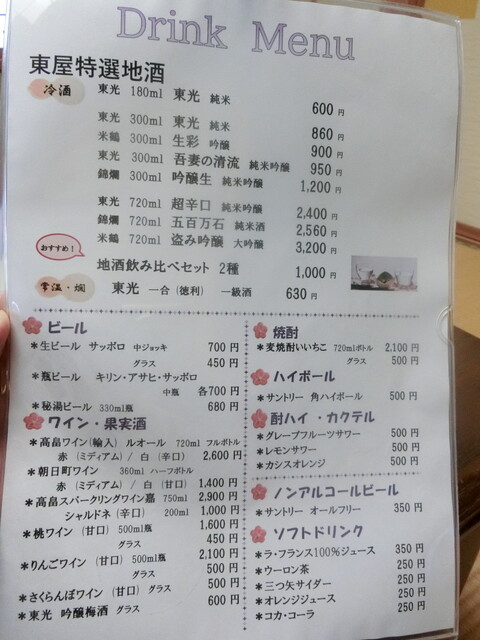 Drink Menu
東屋特選地酒
冷酒 東光 180ml 東光 純米 600 円
東光 300ml 東光 純米 860 円
米鶴 300ml 生彩 吟醸 900 円
東光 300ml 吾妻の清流 純米吟醸 950 円
錦爛 300ml 吟醸生 純米吟醸 1,200 円
東光 720ml 超辛口 純米吟醸 2,400 円
錦爛 720ml 五百万石 純米酒 2,560 円
おすすめ! 米鶴 720ml 盗み吟醸 大吟醸 3,200 円
地酒飲み比べセット 2種 1,000 円
常温・燗 東光 一合(徳利) 一級酒 630 円
ビール
*生ビール サッポロ 中ジョッキ 700 円
グラス 450 円
*瓶ビール キリン・アサヒ・サッポロ
中瓶 各700 円
*秘湯ビール 330ml瓶 680 円
ワイン・果実酒
*高畠ワイン(輸入) ルオール 720ml フルボトル
赤(ミディアム) / 白(辛口) 2,600 円
*朝日町ワイン 360ml ハーフボトル
赤(ミディアム) / 白(甘口) 1,400 円
*高畠スパークリングワイン嘉 750ml 2,900 円
シャルドネ(辛口) 200ml 1,000 円
*桃ワイン(甘口) 500ml瓶 1,600 円
グラス 450 円
*りんごワイン(甘口) 500ml瓶 2,100 円
グラス 500 円
*さくらんぼワイン(甘口) グラス 500 円
*東光 吟醸梅酒 グラス 600 円
焼酎
*麦焼酎いいちこ 720mlボトル 2,100 円
グラス 500 円
ハイボール
*サントリー 角ハイボール 500 円
酎ハイ・カクテル
*グレープフルーツサワー 500 円
*レモンサワー 500 円
*カシスオレンジ 500 円
ノンアルコールビール
*サントリー オールフリー 350 円
ソフトドリンク
*ラ・フランス100%ジュース 350 円
*ウーロン茶 250 円
*三つ矢サイダー 250 円
*オレンジジュース 250 円
*コカ・コーラ 250 円